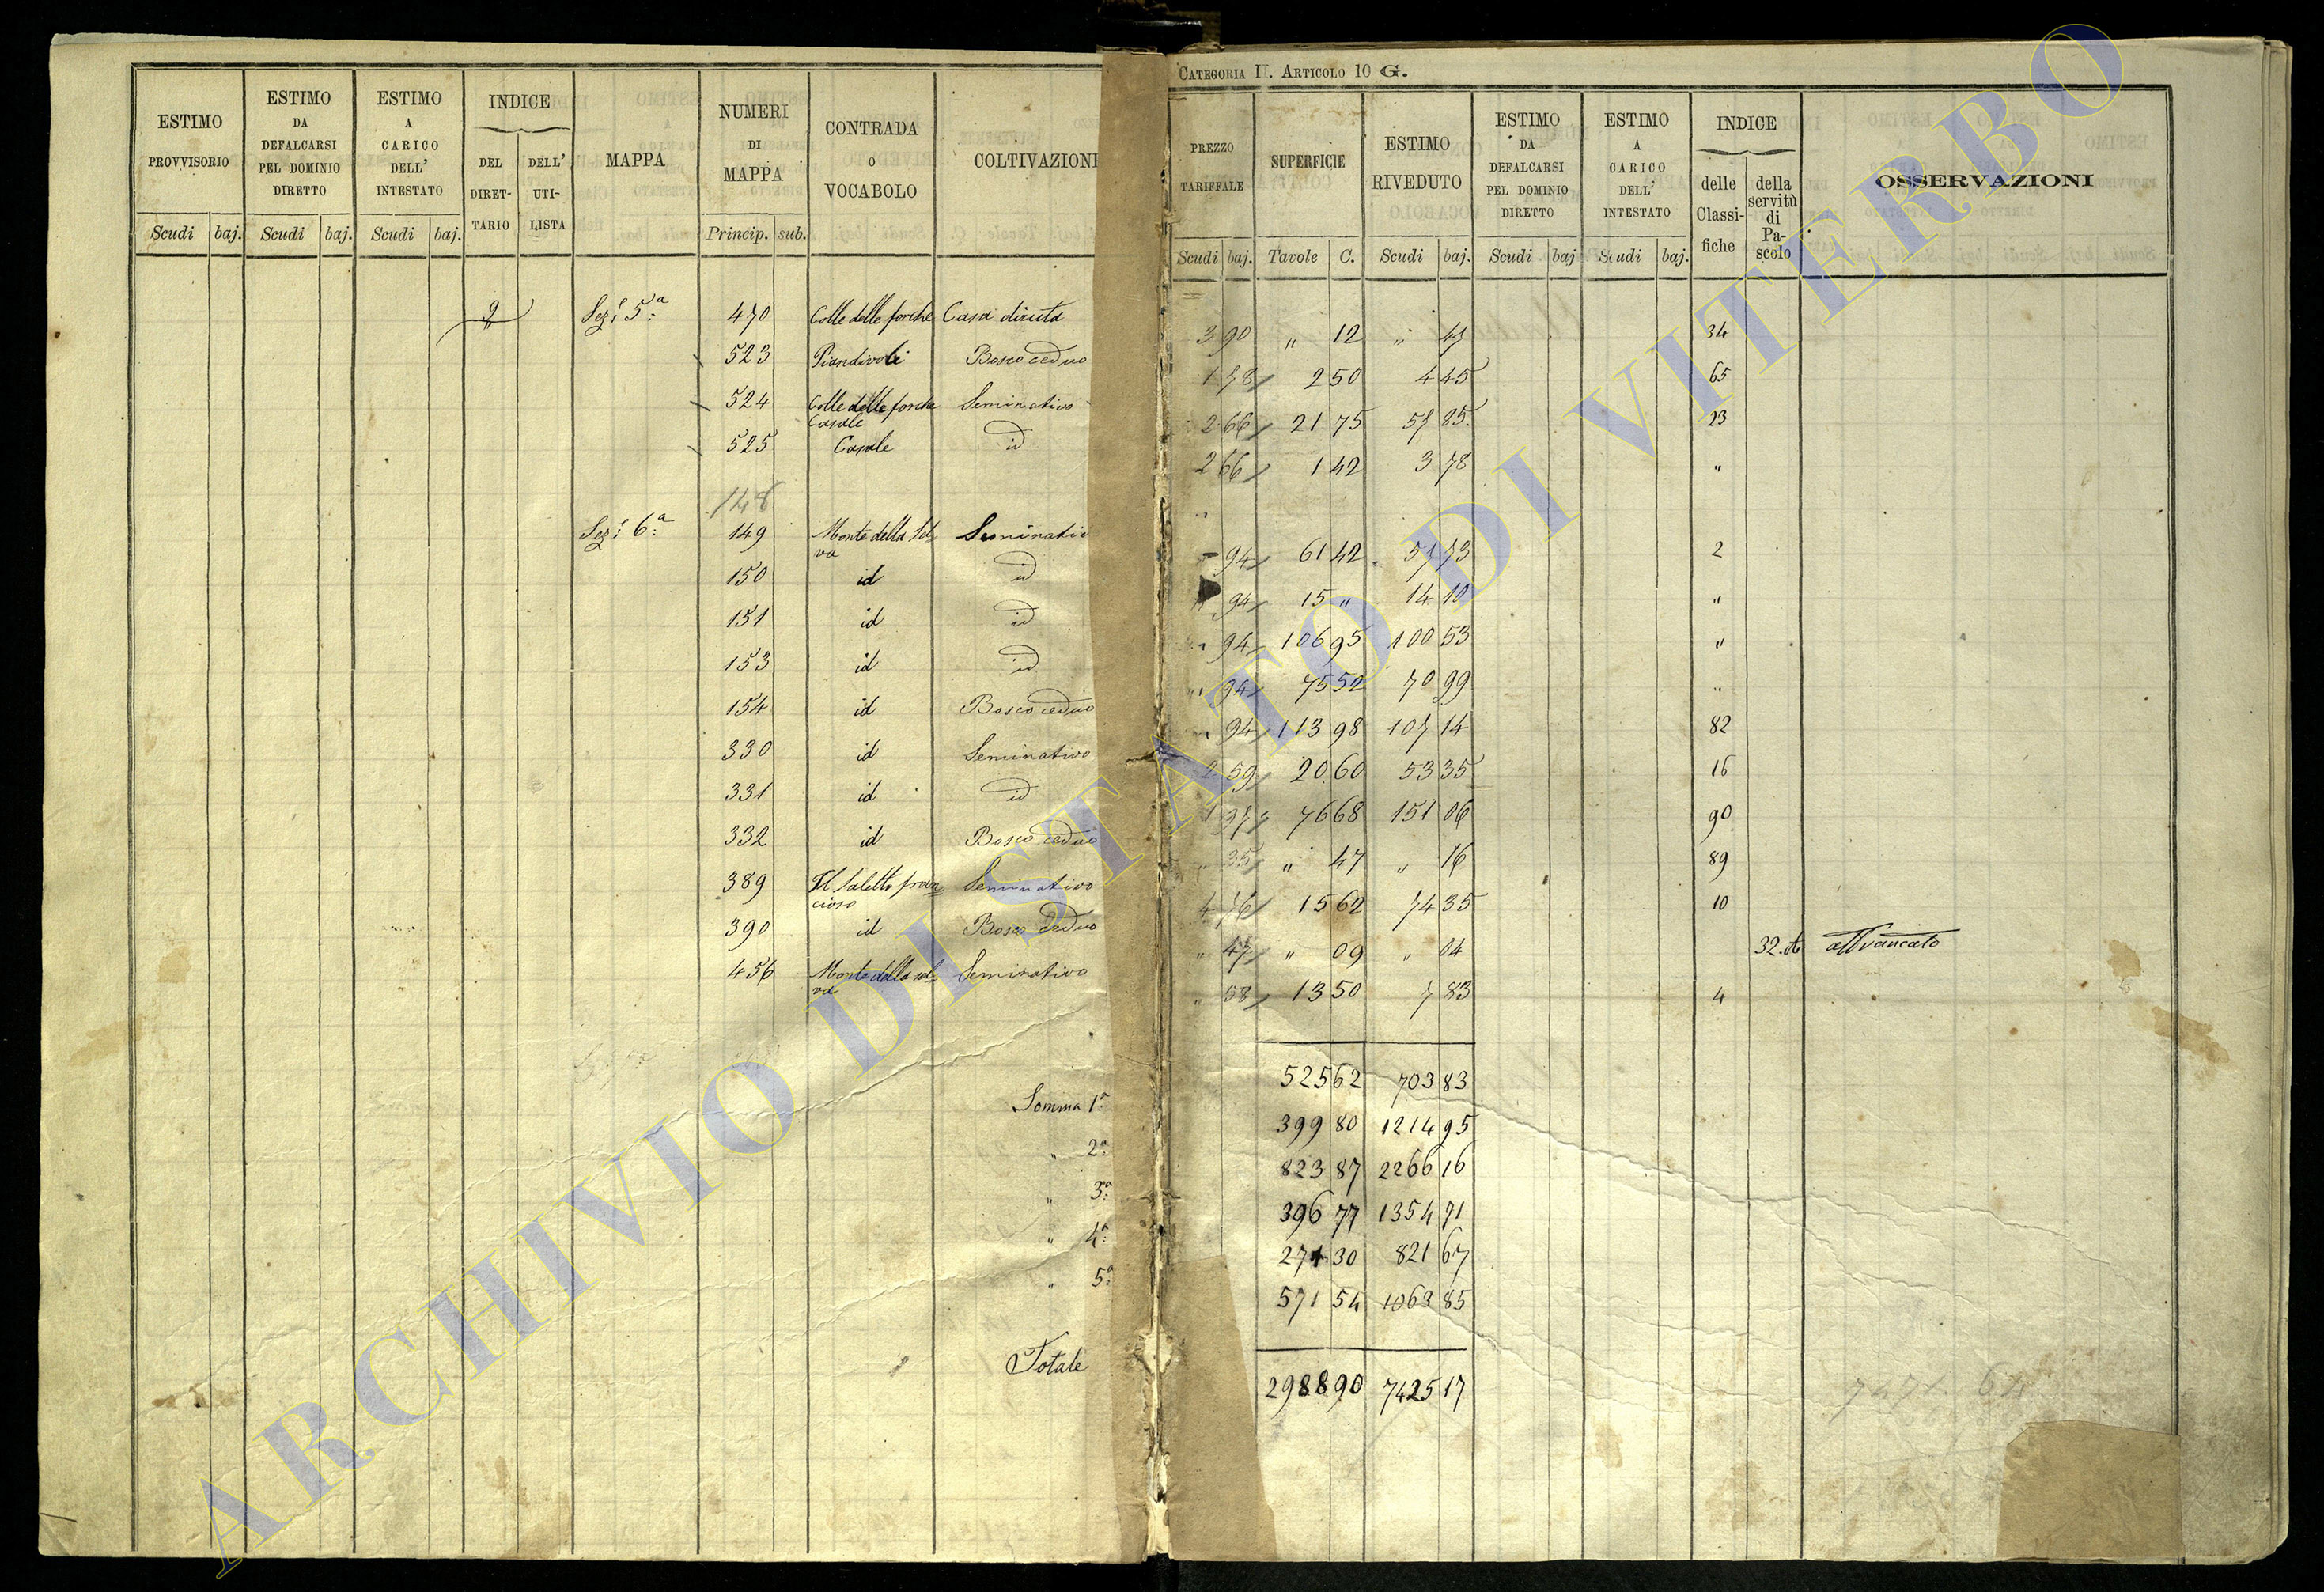 CATEGORIA II. ARTICOLO 10 G.
ESTIMO PROVVISORIO
ESTIMO DA DEFALCARSI PEL DOMINIO DIRETTO
ESTIMO A CARICO DELL' INTESTATO
INDICE
DEL DIRET-TARIO
DELL' UTI-LISTA
MAPPA
NUMERI DI MAPPA
CONTRADA O VOCABOLO
COLTIVAZIONE
Scudi baj. Scudi baj. Scudi baj. Princip. sub.
PREZZO TARIFFALE
SUPERFICIE
ESTIMO RIVEDUTO
ESTIMO DA DEFALCARSI PEL DOMINIO DIRETTO
ESTIMO A CARICO DELL' INTESTATO
INDICE
delle Classi-fiche
della servitù di Pa-scolo
OSSERVAZIONI
Scudi baj. Tavole C. Scudi baj. Scudi baj Scudi baj.
9 Sez.e 5.a 470 Colle delle forche Casa diruta 3 90 " 12 " 47 34
523 Piandivoli Bosco ceduo 1 78 2 50 4 45 65
524 Colle delle forche Casale Seminativo 2 66 21 75 57 85 23
525 Casale id 2 66 1 42 3 78 "
148
Sez.e 6.a 149 Monte della Selva Seminativo " 94 61 42 57 73 2
150 id id " 94 15 " 14 10 "
151 id id " 94 106 95 100 53 "
153 id id " 94 75 52 70 99 "
154 id Bosco ceduo " 94 113 98 107 14 82
330 id Seminativo 2 59 20 60 53 35 16
331 id id 1 97 76 68 151 06 90
332 id Bosco ceduo " 35 " 47 " 16 89
389 Il Saletto francioso Seminativo 4 76 15 62 74 35 10
390 id Bosco ceduo " 47 " 09 " 04 32. affrancato
456 Monte della selva Seminativo " 58 13 50 7 83 4
525 62 703 83
Somma 1.a 399 80 1214 95
" 2.a 823 87 2266 16
" 3.a 396 77 1354 71
" 4.a 271 30 821 67
" 5.a 571 54 1063 85
Totale 2988 90 7425 17
ARCHIVIO DI STATO DI VITERBO